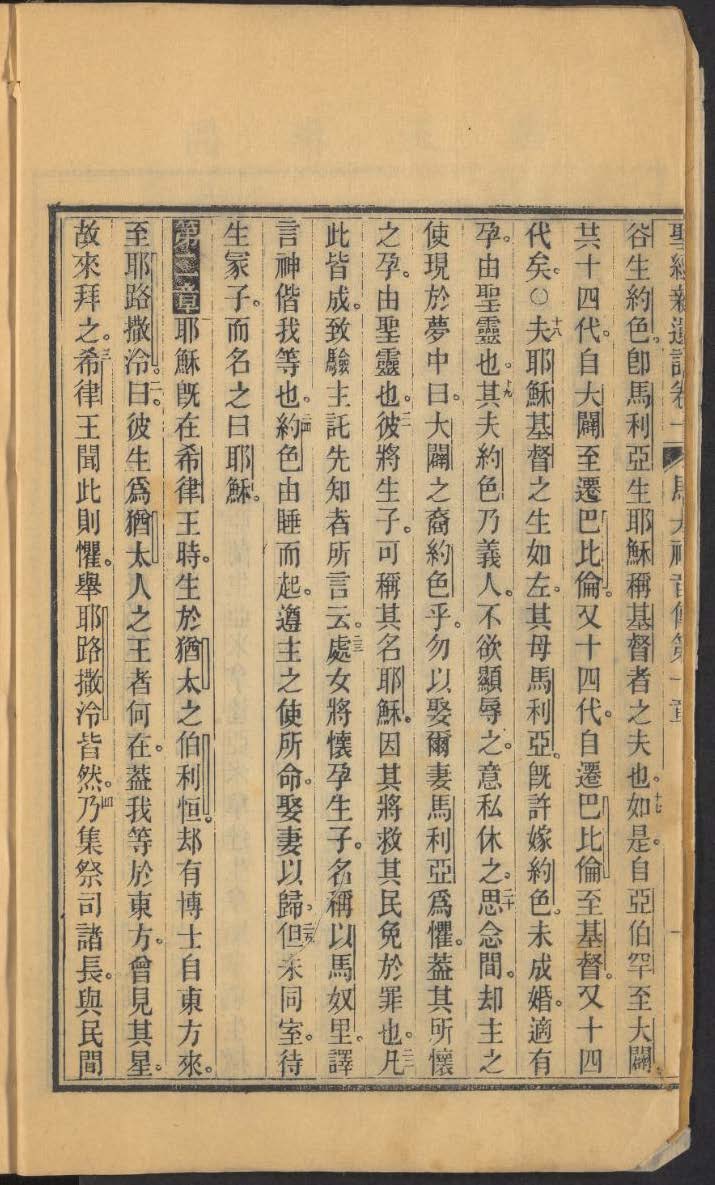 聖經新遺詔卷一 馬太福音傳第一章
谷生約色。卽馬利亞生耶穌稱基督者之夫也。十七如是。自亞伯罕至大闢
共十四代。自大闢至遷巴比倫。又十四代。自遷巴比倫至基督。又十四
代矣。○十八夫耶穌基督之生如左。其母馬利亞。旣許嫁約色。未成婚。適有
孕。由聖靈也。十九其夫約色乃義人。不欲顯辱之。意私休之。二十思念間。却主之
使現於夢中曰。大闢之裔約色乎。勿以娶爾妻馬利亞爲懼。葢其所懷
之孕。由聖靈也。二一彼將生子。可稱其名耶穌。因其將救其民免於罪也。二二凡
此皆成。致驗主託先知者所言云。二三處女將懷孕生子。名稱以馬奴里。譯
言神偕我等也。二四約色由睡而起。遵主之使所命。娶妻以歸。二五但未同室。待
生冢子。而名之曰耶穌。
第二章 一耶穌旣在希律王時。生於猶太之伯利恒。却有博士自東方來。
至耶路撒冷。二曰。彼生爲猶太人之王者何在。葢我等於東方。曾見其星。
故來拜之。三希律王聞此則懼。舉耶路撒冷皆然。四乃集祭司諸長。與民間